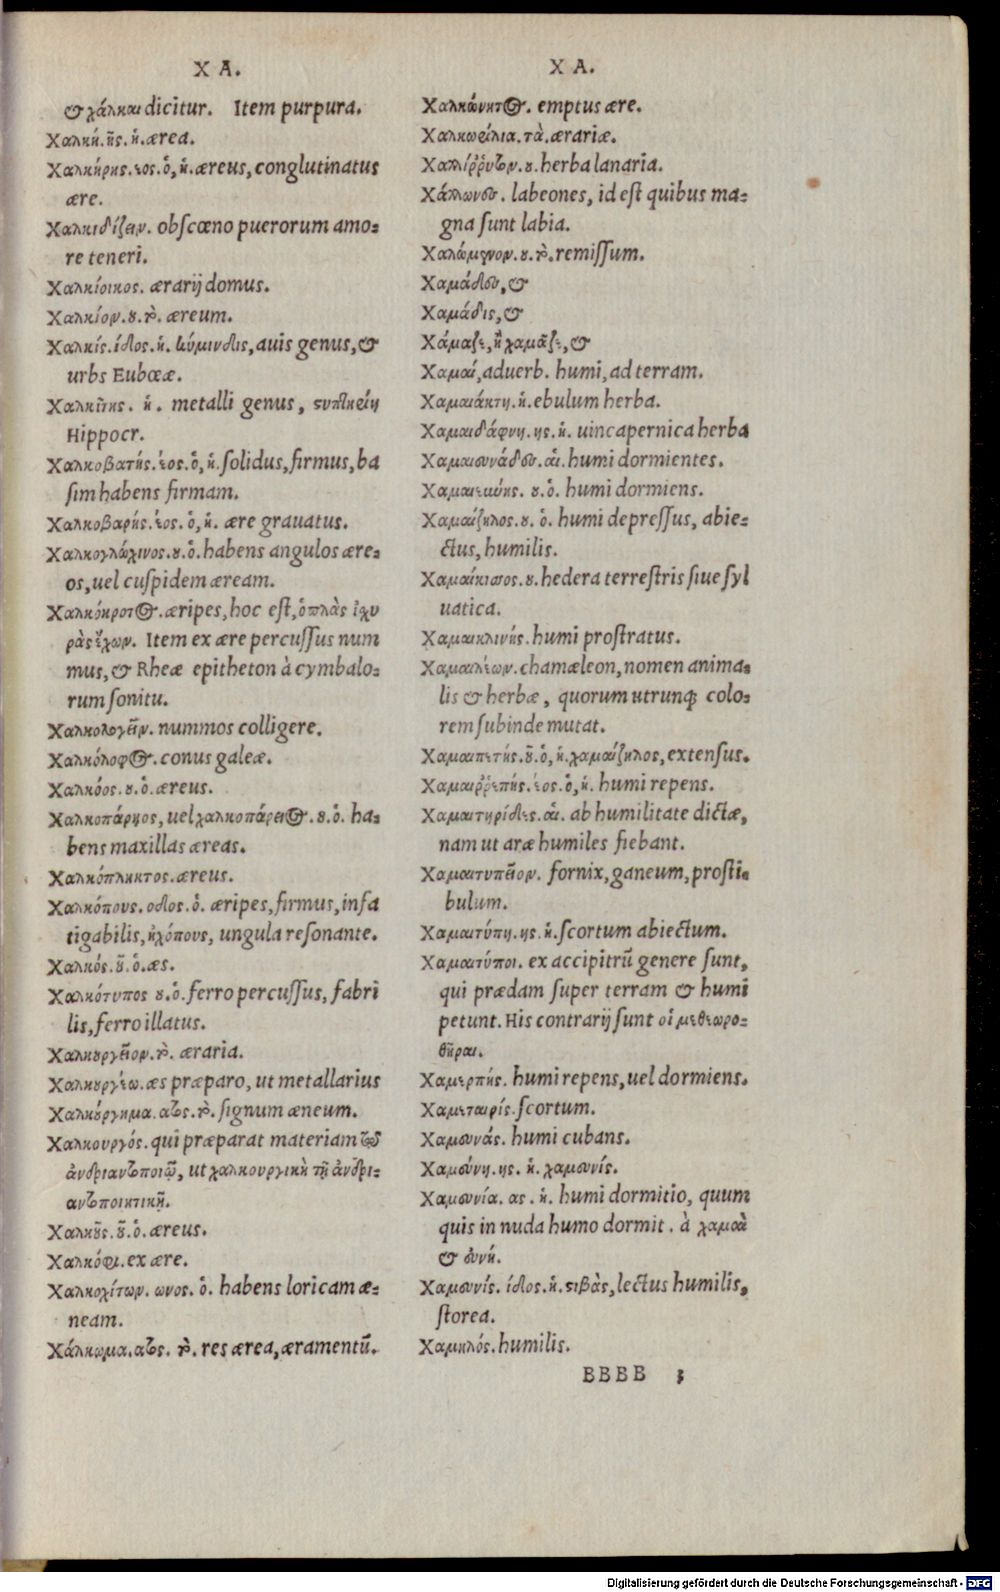 Χ Α.
& χάλκαι dicitur. Item purpura.
Χαλκῆ. ῆς. ἡ. ærea.
Χαλκήρης. εος. ὁ, ἡ. æreus, conglutinatus
ære.
Χαλκιδίζειν. obscœno puerorum amo-
re teneri.
Χαλκίοικος. ærarij domus.
Χαλκίον. ου. τὸ. æreum.
Χαλκίς. ίδος. ἡ. κύμινδις, auis genus, &
urbs Eubœæ.
Χαλκῖτις. ἡ. metalli genus, στυπτηρίη
Hippocr.
Χαλκοβατής. έος. ὁ, ἡ. solidus, firmus, ba
sim habens firmam.
Χαλκοβαρής. έος. ὁ, ἡ. ære grauatus.
Χαλκογλώχινος. ου. ὁ. habens angulos ære-
os, uel cuspidem æream.
Χαλκόκροτος. æripes, hoc est, ὁπλὰς ἰχυ
ρὰς ἔχων. Item ex ære percussus num
mus, & Rheæ epitheton à cymbalo-
rum sonitu.
Χαλκολογεῖν. nummos colligere.
Χαλκόλοφος. conus galeæ.
Χαλκόος. ου. ὁ. æreus.
Χαλκοπάρηος, uel χαλκοπάρειος. ου. ὁ. ha-
bens maxillas æreas.
Χαλκόπληκτος. æreus.
Χαλκόπους. οδος. ὁ. æripes, firmus, infa
tigabilis, ἠχόπους, ungula resonante.
Χαλκός. οῦ. ὁ. æs.
Χαλκότυπος ου. ὁ. ferro percussus, fabri
lis, ferro illatus.
Χαλκουργεῖον. τὸ. æraria.
Χαλκουργέω. æs præparo, ut metallarius
Χαλκούργημα. ατος. τὸ. signum æneum.
Χαλκουργός. qui præparat materiam τῷ
ἀνδριαντοποιῷ, ut χαλκουργικὴ τῇ ἀνδρι-
αντοποιητικῇ.
Χαλκοῦς. οῦ. ὁ. æreus.
Χαλκόφι. ex ære.
Χαλκοχίτων. ωνος. ὁ. habens loricam æ-
neam.
Χάλκωμα. ατος. τὸ. res ærea, æramentũ.
Χ Α.
Χαλκώνητος. emptus ære.
Χαλκωρύχια. τὰ. ærariæ.
Χαλλίῤῥυτον. ου. herba lanaria.
Χάλλωνες. labeones, id est quibus ma-
gna sunt labia.
Χαλώμενον. ου. τὸ. remissum.
Χαμάδις, &
Χαμάδις, &
Χάμαζε, ἢ χαμᾶζε, &
Χαμαί, aduerb. humi, ad terram.
Χαμαιάκτη. ἡ. ebulum herba.
Χαμαιδάφνη. ης. ἡ. uincapernica herba
Χαμαιευνάδες. αἱ. humi dormientes.
Χαμαιεύνης. ου. ὁ. humi dormiens.
Χαμαίζηλος. ου. ὁ. humi depressus, abie-
ctus, humilis.
Χαμαίκισσος. ου. hedera terrestris siue syl
uatica.
Χαμαικλινής. humi prostratus.
Χαμαιλέων. chamæleon, nomen anima-
lis & herbæ, quorum utrunq; colo-
rem subinde mutat.
Χαμαιπετής. οῦ. ὁ, ἡ. χαμαίζηλος, extensus.
Χαμαιῤῥεπής. έος. ὁ, ἡ. humi repens.
Χαμαιτηρίδες. αἱ. ab humilitate dictæ,
nam ut aræ humiles fiebant.
Χαμαιτυπεῖον. fornix, ganeum, prosti-
bulum.
Χαμαιτύπη. ης. ἡ. scortum abiectum.
Χαμαιτύποι. ex accipitrũ genere sunt,
qui prædam super terram & humi
petunt. His contrarij sunt οἱ μετεωρο-
θῆραι.
Χαμερπής. humi repens, uel dormiens.
Χαμεταιρίς. scortum.
Χαμευνάς. humi cubans.
Χαμεύνη. ης. ἡ. χαμευνίς.
Χαμευνία. ας. ἡ. humi dormitio, quum
quis in nuda humo dormit. à χαμαὶ
& εὐνή.
Χαμευνίς. ίδος. ἡ. στιβὰς, lectus humilis,
storea.
Χαμηλός. humilis.
BBBB 3
Digitalisierung gefördert durch die Deutsche Forschungsgemeinschaft - DFG